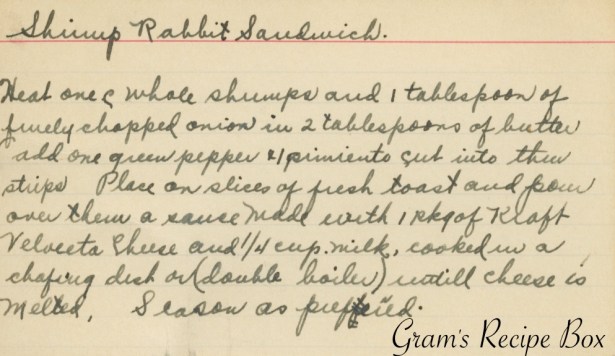 Shrimp Rabbit Sandwich.
Heat one c whole shrimps and 1 tablespoon of
finely chopped onion in 2 tablespoons of butter
add one green pepper & 1 pimiento cut into thin
strips Place on slices of fresh toast and pour
over them a sause made with 1 pkg of Kraft
Velveeta Cheese and 1/4 cup. milk, cooked in a
chafing dish or (double boiler) untill cheese is
melted, Season as preferred.
Gram's Recipe Box